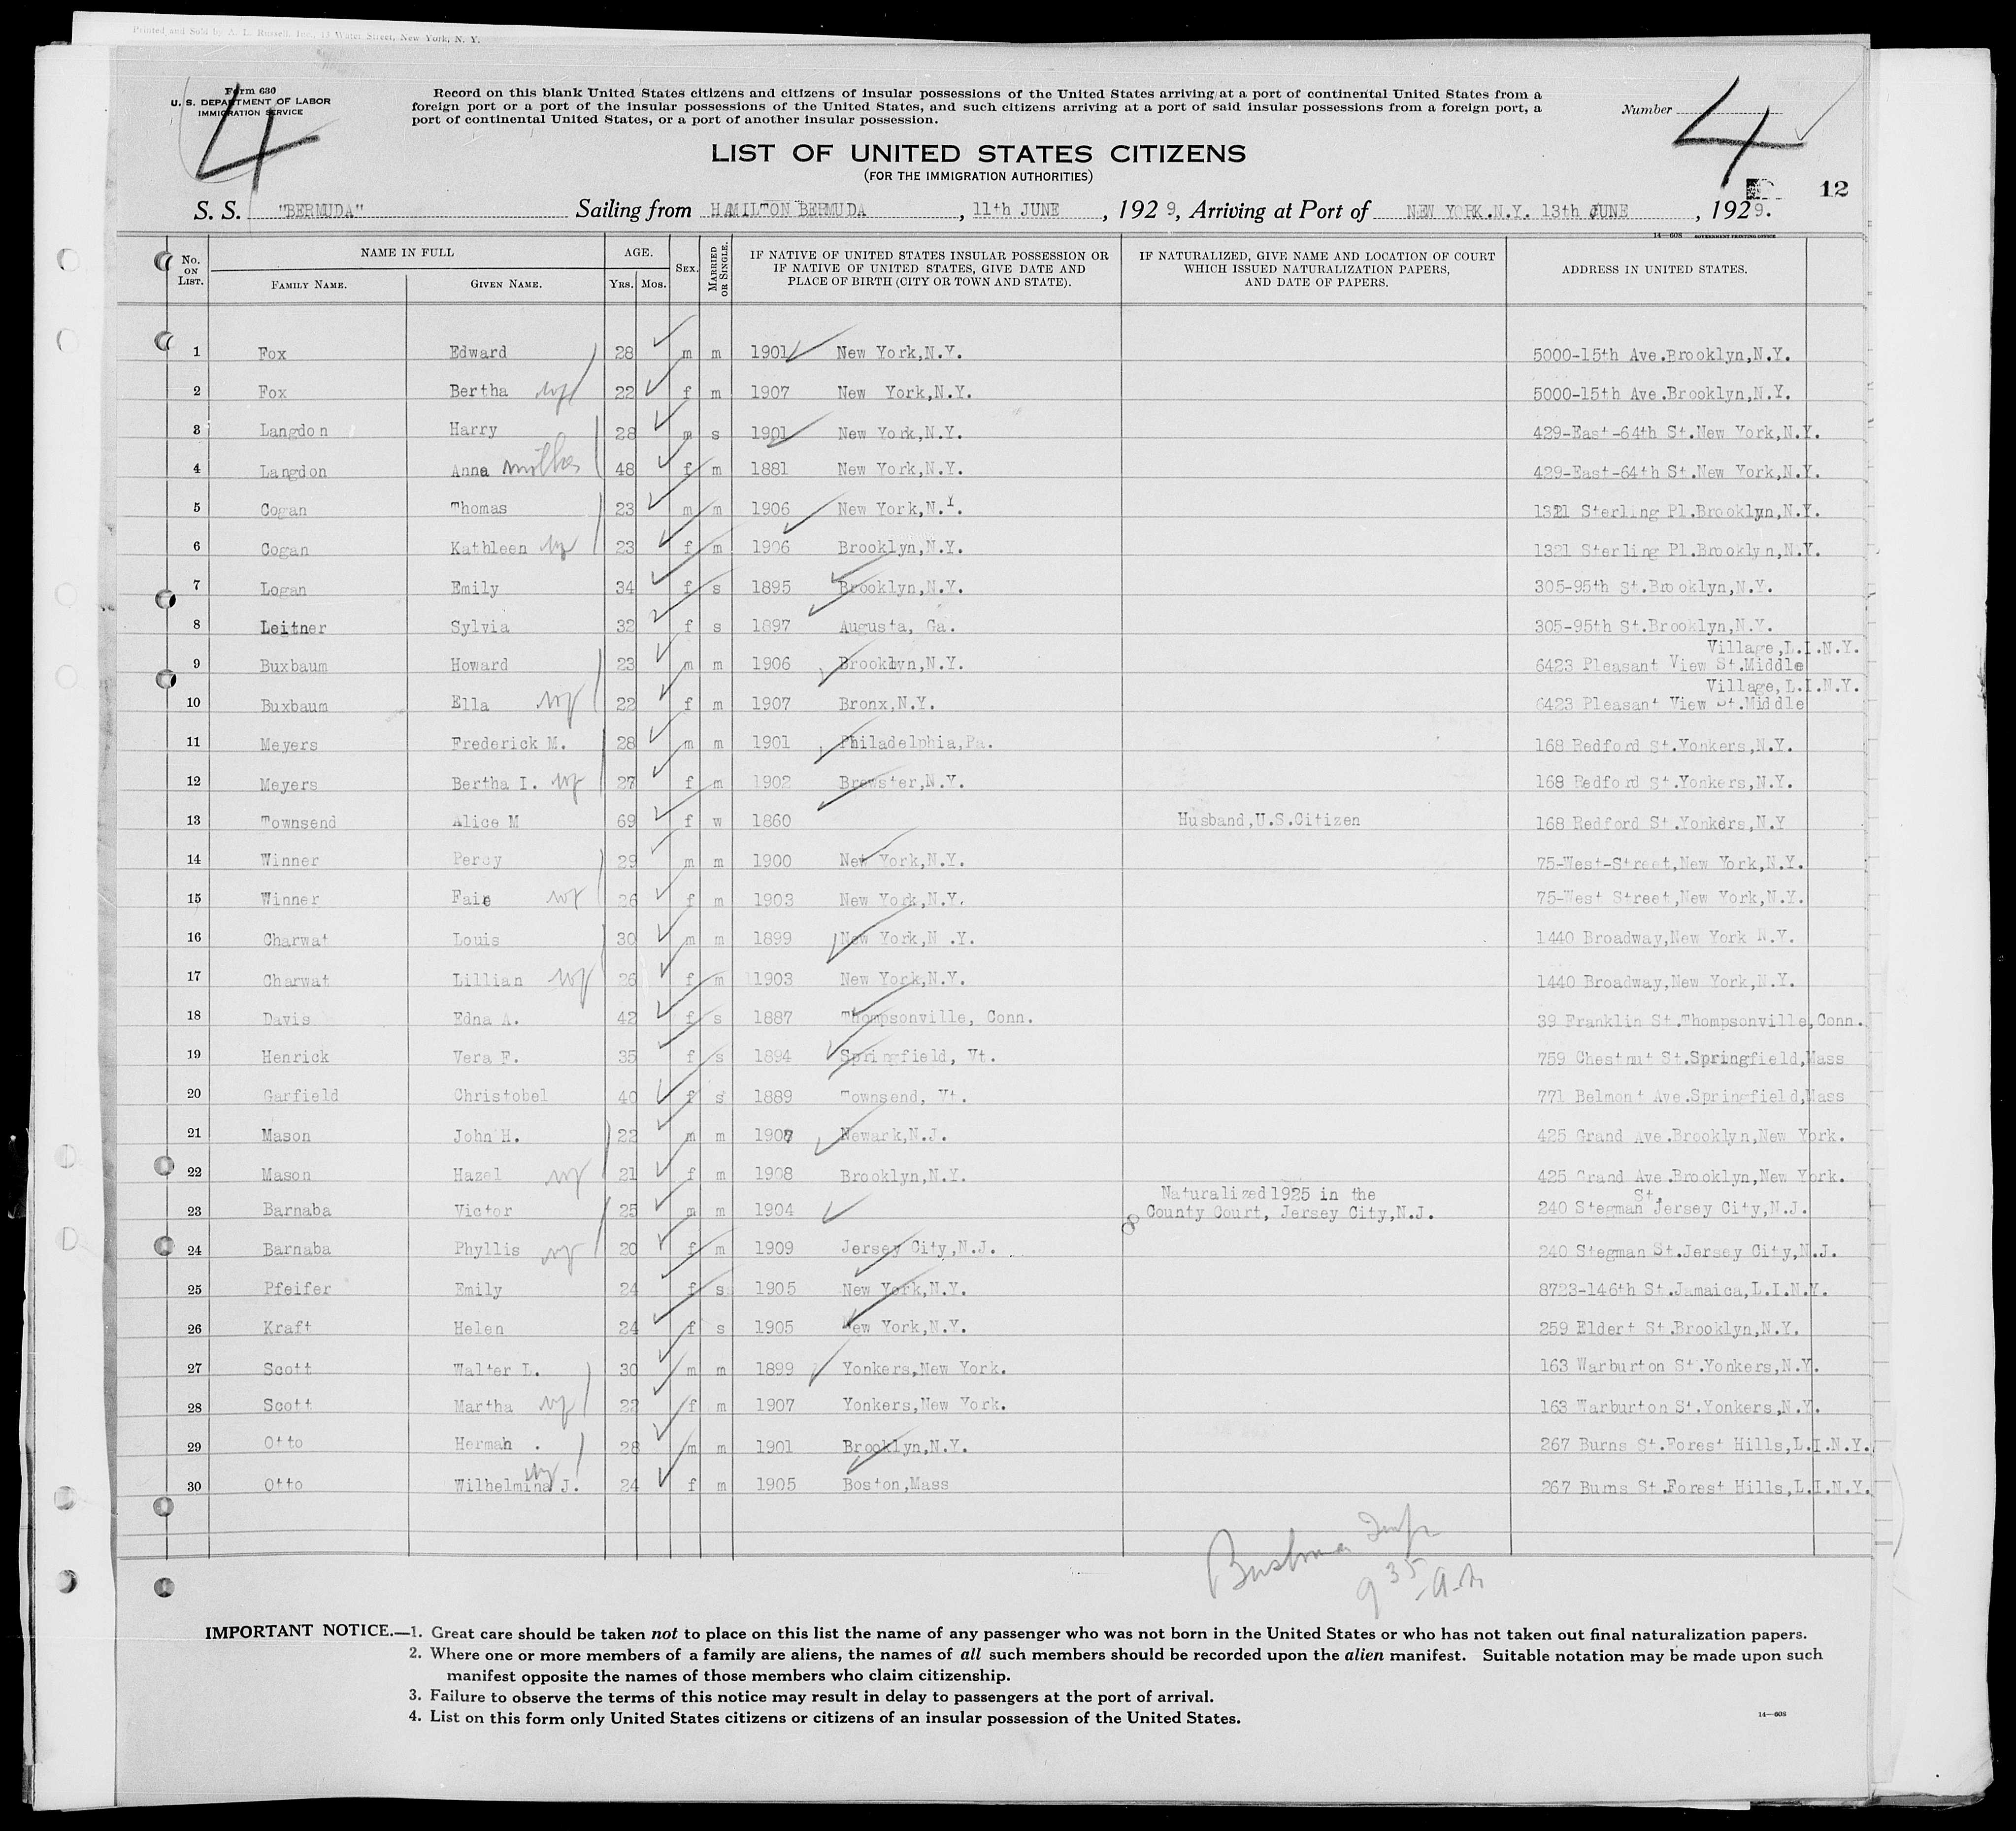 Printed and Sold by A. L. Russell, Inc., 13 Water Street, New York, N. Y.
Form 630
U. S. DEPARTMENT OF LABOR
IMMIGRATION SERVICE
4
Record on this blank United States citizens and citizens of insular possessions of the United States arriving at a port of continental United States from a
foreign port or a port of the insular possessions of the United States, and such citizens arriving at a port of said insular possessions from a foreign port, a
port of continental United States, or a port of another insular possession.
Number 4
LIST OF UNITED STATES CITIZENS
(FOR THE IMMIGRATION AUTHORITIES)
12
S. S. "BERMUDA" Sailing from HAMILTON BERMUDA, 11th JUNE, 1929, Arriving at Port of NEW YORK.N.Y. 13th JUNE, 1929.
14—608 GOVERNMENT PRINTING OFFICE
No. ON LIST. NAME IN FULL FAMILY NAME. GIVEN NAME. AGE. YRS. MOS. SEX. MARRIED OR SINGLE. IF NATIVE OF UNITED STATES INSULAR POSSESSION OR IF NATIVE OF UNITED STATES, GIVE DATE AND PLACE OF BIRTH (CITY OR TOWN AND STATE). IF NATURALIZED, GIVE NAME AND LOCATION OF COURT WHICH ISSUED NATURALIZATION PAPERS, AND DATE OF PAPERS. ADDRESS IN UNITED STATES.
1 Fox Edward 28 m m 1901 New York,N.Y. 5000-15th Ave.Brooklyn,N.Y.
2 Fox Bertha wf 22 f m 1907 New York,N.Y. 5000-15th Ave.Brooklyn,N.Y.
3 Langdon Harry 28 m s 1901 New York,N.Y. 429-East-64th St.New York,N.Y.
4 Langdon Anna mother 48 f m 1881 New York,N.Y. 429-East-64th St.New York,N.Y.
5 Cogan Thomas 23 m m 1906 New York,N.Y. 1321 Sterling Pl.Brooklyn,N.Y.
6 Cogan Kathleen wf 23 f m 1906 Brooklyn,N.Y. 1321 Sterling Pl.Brooklyn,N.Y.
7 Logan Emily 34 f s 1895 Brooklyn,N.Y. 305-95th St.Brooklyn,N.Y.
8 Leitner Sylvia 32 f s 1897 Augusta, Ga. 305-95th St.Brooklyn,N.Y.
Village,L.I.N.Y.
9 Buxbaum Howard 23 m m 1906 Brooklyn,N.Y. 6423 Pleasant View St.Middle
Village,L.I.N.Y.
10 Buxbaum Ella wf 22 f m 1907 Bronx,N.Y. 6423 Pleasant View St.Middle
11 Meyers Frederick M. 28 m m 1901 Philadelphia,Pa. 168 Redford St.Yonkers,N.Y.
12 Meyers Bertha I. wf 27 f m 1902 Brewster,N.Y. 168 Redford St.Yonkers,N.Y.
13 Townsend Alice M 69 f w 1860 Husband,U.S.Citizen 168 Redford St.Yonkers,N.Y
14 Winner Percy 29 m m 1900 New York,N.Y. 75-West-Street,New York,N.Y.
15 Winner Faie wf 26 f m 1903 New York,N.Y. 75-West Street,New York,N.Y.
16 Charwat Louis 30 m m 1899 New York,N .Y. 1440 Broadway,New York N.Y.
17 Charwat Lillian wf 26 f m 1903 New York,N.Y. 1440 Broadway,New York,N.Y.
18 Davis Edna A. 42 f s 1887 Thompsonville, Conn. 39 Franklin St.Thompsonville,Conn.
19 Henrick Vera F. 35 f s 1894 Springfield, Vt. 759 Chestnut St.Springfield,Mass
20 Garfield Christobel 40 f s 1889 Townsend, Vt. 771 Belmont Ave.Springfield,Mass
21 Mason John H. 22 m m 1907 Newark,N.J. 425 Grand Ave.Brooklyn,New York.
22 Mason Hazel wf 21 f m 1908 Brooklyn,N.Y. 425 Grand Ave.Brooklyn,New York.
Naturalized 1925 in the St.
23 Barnaba Victor 25 m m 1904 County Court, Jersey City,N.J. 240 Stegman Jersey City,N.J.
24 Barnaba Phyllis wf 20 f m 1909 Jersey City,N.J. 240 Stegman St.Jersey City,N.J.
25 Pfeifer Emily 24 f s 1905 New York,N.Y. 8723-146th St.Jamaica,L.I.N.Y.
26 Kraft Helen 24 f s 1905 New York,N.Y. 259 Eldert St.Brooklyn,N.Y.
27 Scott Walter L. 30 m m 1899 Yonkers,New York. 163 Warburton St.Yonkers,N.Y.
28 Scott Martha wf 22 f m 1907 Yonkers,New York. 163 Warburton St.Yonkers,N.Y.
29 Otto Herman . 28 m m 1901 Brooklyn,N.Y. 267 Burns St.Forest Hills,L.I.N.Y.
30 Otto Wilhelmina J. wf 24 f m 1905 Boston,Mass 267 Burns St.Forest Hills,L.I.N.Y.
9 35
IMPORTANT NOTICE.—1. Great care should be taken not to place on this list the name of any passenger who was not born in the United States or who has not taken out final naturalization papers.
2. Where one or more members of a family are aliens, the names of all such members should be recorded upon the alien manifest. Suitable notation may be made upon such
manifest opposite the names of those members who claim citizenship.
3. Failure to observe the terms of this notice may result in delay to passengers at the port of arrival.
4. List on this form only United States citizens or citizens of an insular possession of the United States.
14—608